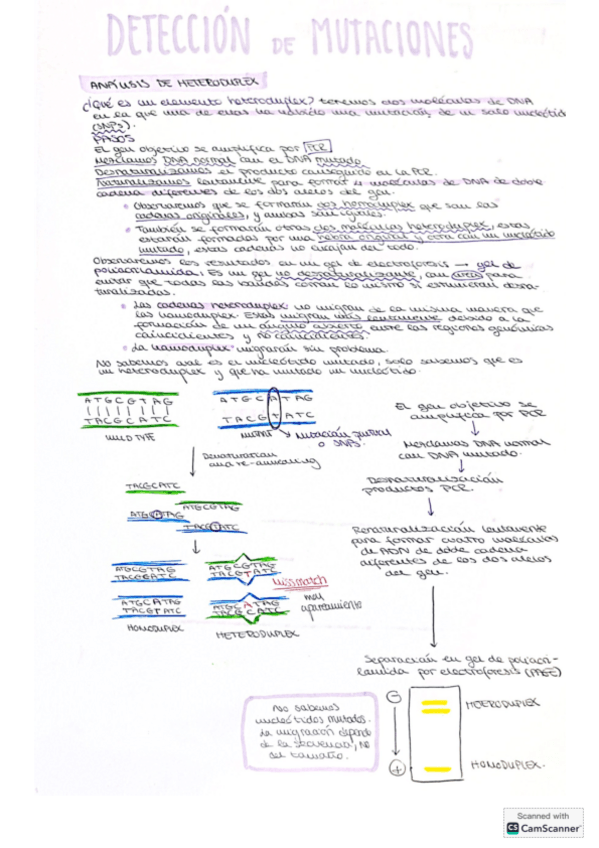 DETECCIÓN DE MUTACIONES
ANÁLISIS DE HETERODUPLEX
¿Qué es un elemento heteroduplex? tenemos dos moléculas de DNA
en la que una de ellas ha habido una mutación, de un solo nucleótido
(SNPs).
PASOS
El gen objetivo se amplifica por PCR
Mezclamos DNA normal con el DNA mutado
Desnaturalizamos el producto conseguido en la PCR.
Renaturalizamos lentamente para formar 4 moléculas de DNA de doble
cadena diferentes de los dos alelos del gen.
• Observaremos que se formarán dos homoduplex que son las
cadenas originales, y ambas son iguales.
• También se formarán otras dos moléculas heteroduplex, estas
estarán formadas por una hebra original y otra con un nucleótido
mutado, estas cadenas no encajan del todo.
Observaremos los resultados en un gel de electroforesis → gel de
poliacrilamida. Es un gel no desnaturalizante, con para
evitar que todas las bandas corran lo mismo si estuvieran desna-
turalizadas.
• Las cadenas heteroduplex no migran de la misma manera que
las homoduplex. Estas migran más lentamente debido a la
formación de un ángulo abierto entre las regiones genómicas
coincidentes y no coincidentes.
• La homoduplex migrarán sin problema.
No sabemos cual es el nucleótido mutado, solo sabemos que es
un heteroduplex y que ha mutado un nucleótido.
ATGCGTAG
TACGCATC
WILD TYPE
ATGCATAG
TACGTATC
MUTANT → Mutación puntual
o SNPs.
Denaturation
and re-annealing
TACGCATC
ATGCGTAG
ATGCATAG
TACGTATC
ATGCGTAG
TACGCATC
ATGCATAG
TACGTATC
HOMODUPLEX
ATGCGTAG
TACGTATC
missmatch
ATGCATAG
TACGCATC
mal
apareamiento
HETERODUPLEX
El gen objetivo se
amplifica por PCR
Mezclamos DNA normal
con DNA mutado.
Desnaturalización
productos PCR.
Renaturalización lentamente
para formar cuatro moléculas
de ADN de doble cadena
diferentes de los dos alelos
del gen.
Separación en gel de poliacri-
lamida por electroforesis (PAGE)
No sabemos
nucleótidos mutados.
La migración depende
de la secuencia, no
del tamaño.
-
+
HETERODUPLEX
HOMODUPLEX.
Scanned with
CS CamScanner